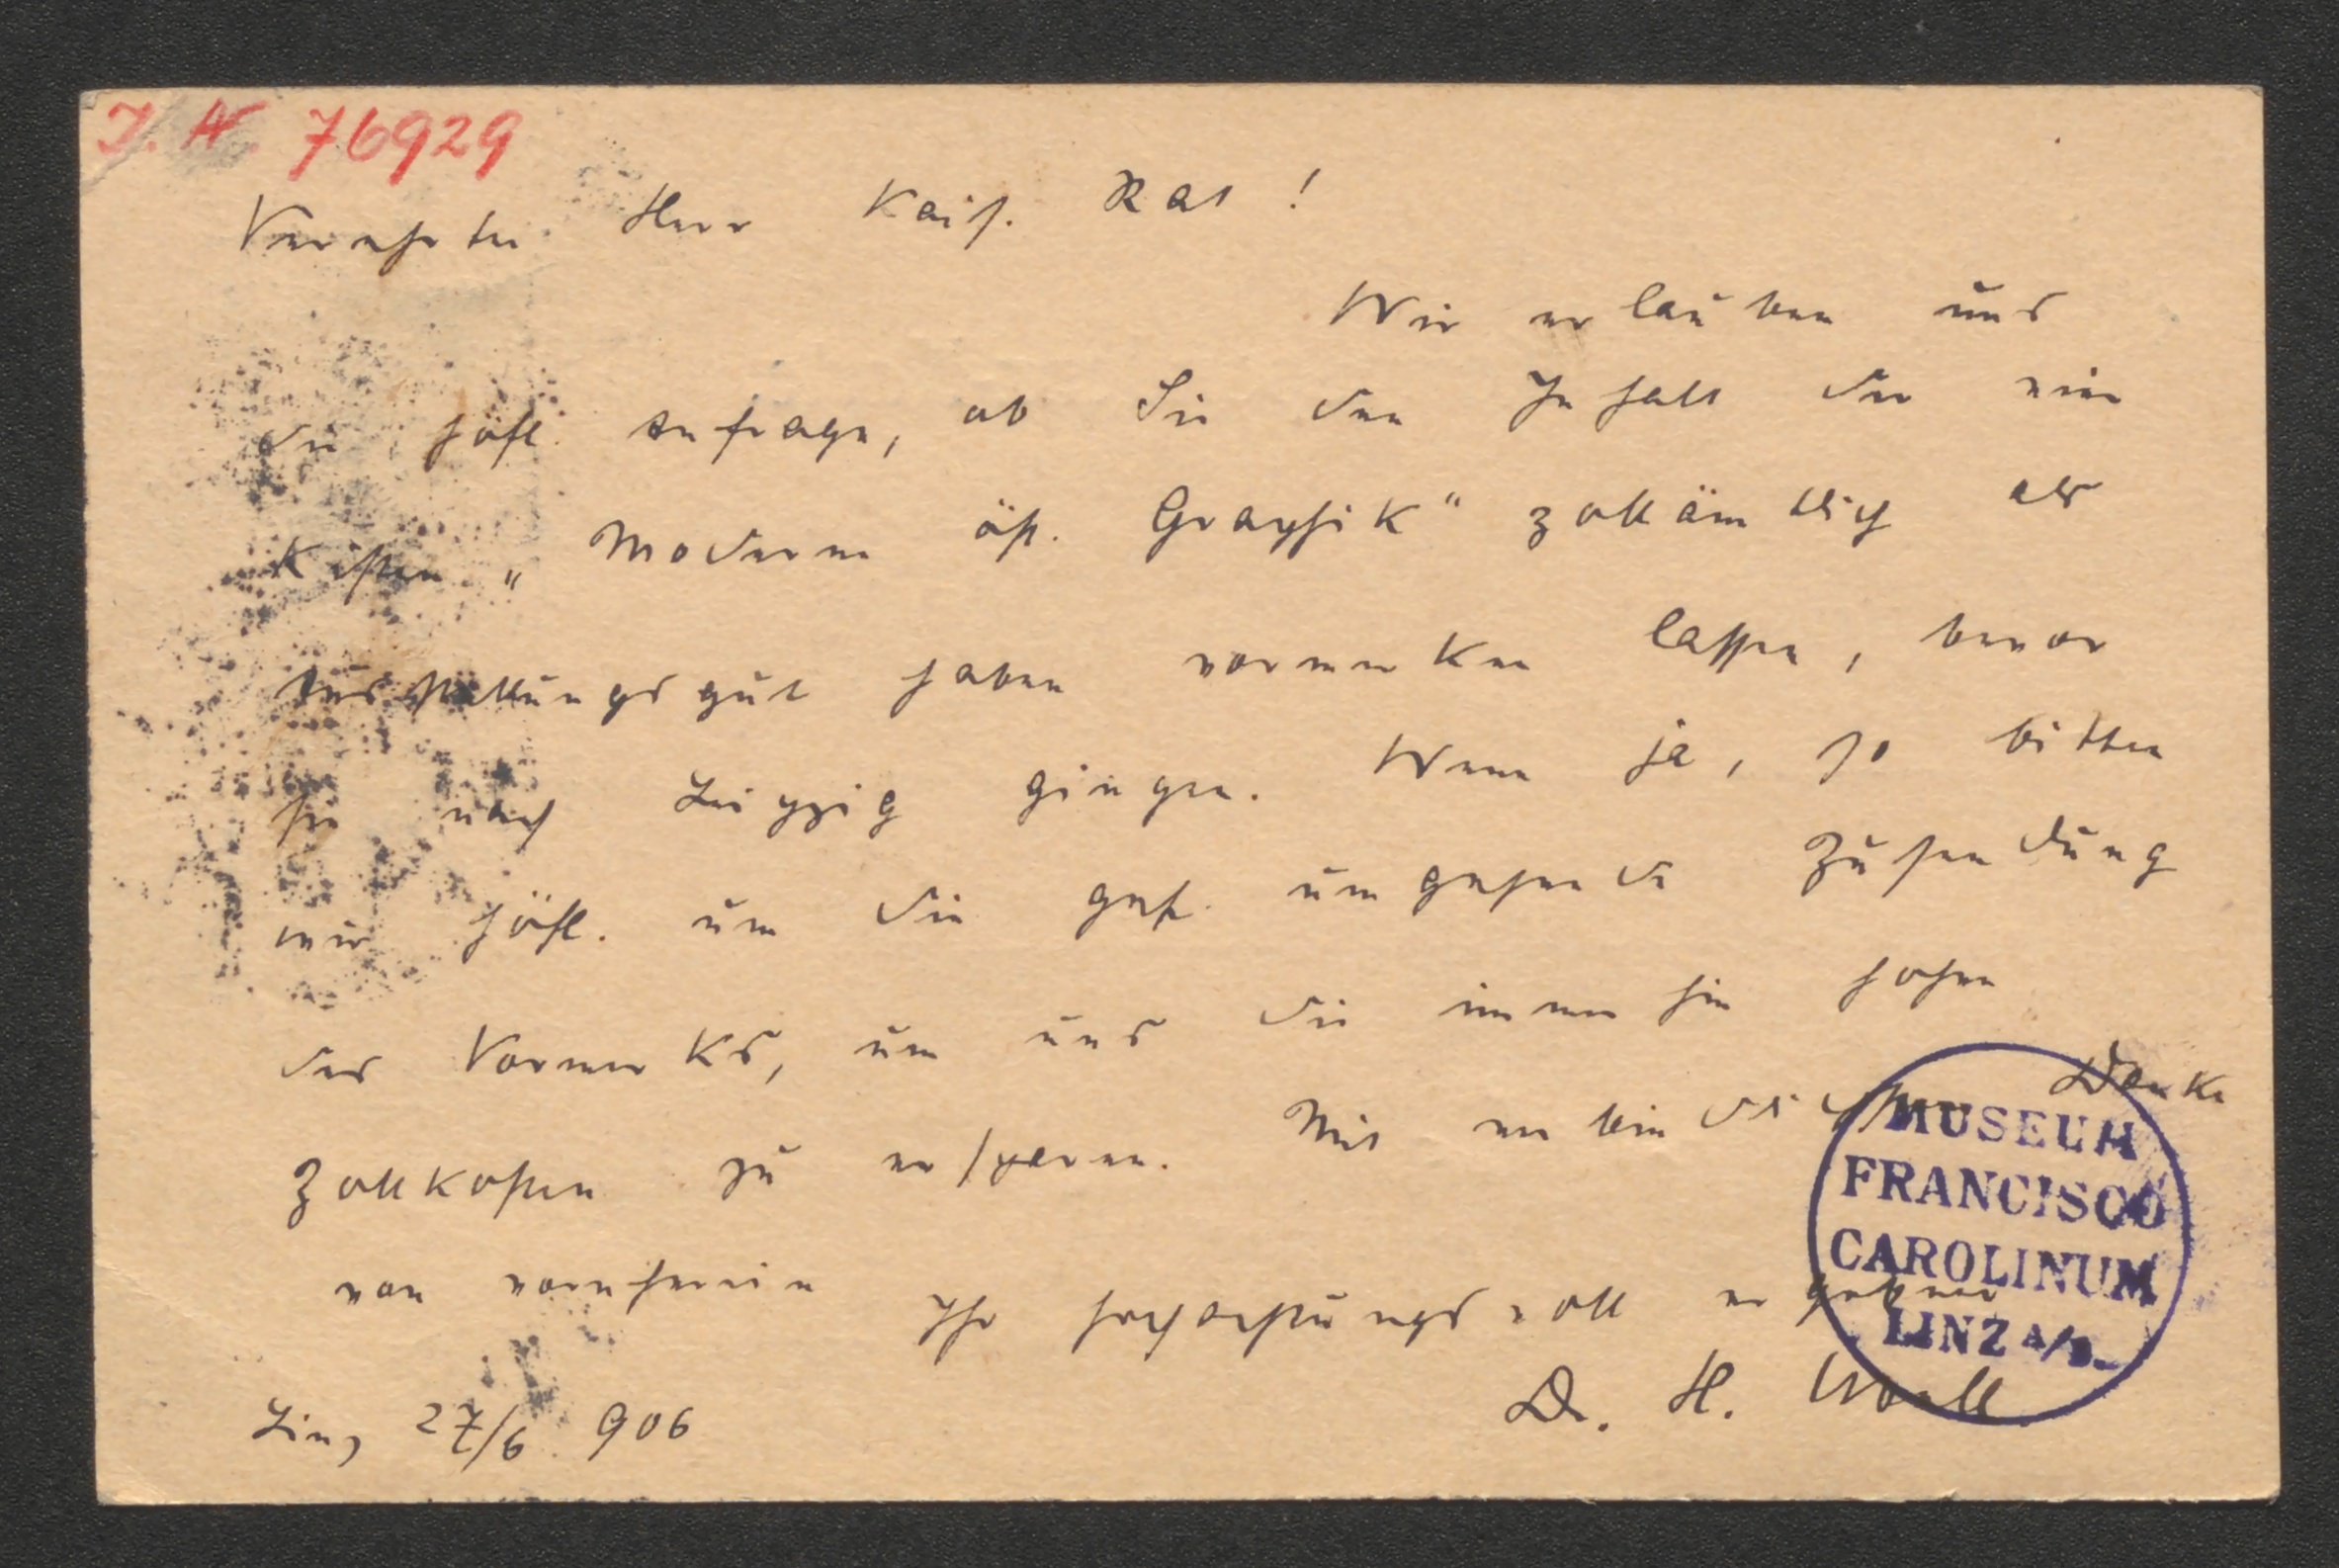 I. N. 76929
Verehrter Herr Kais. Rat!
Wir erlauben uns
die höfl. Anfrage, ob Sie den Inhalt der vier
Kisten „Moderne öst. Graphik" zollämtlich als
Ausstellungsgut haben vormerken lassen, bevor
sie nach Leipzig gingen. Wenn ja, so bitten
wir höfl. um die gef. umgehende Zusendung
des Vormerks, um uns die immerhin hohen
Zollkosten zu ersparen. Mit verbindlichstem Danke
von vornherein
Ihr hochachtungsvoll ergebener
Linz 27/6 906
Dr. H. Ubell
MUSEUM
FRANCISCO
CAROLINUM
LINZ a/D.